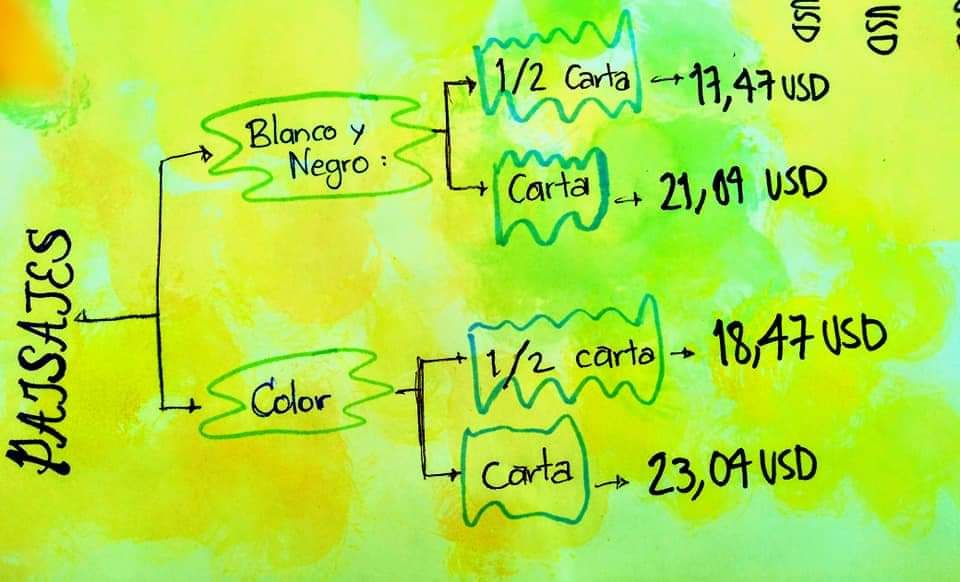 PAISAJES
Blanco y
Negro:
1/2 Carta → 17,47 USD
Carta → 21,09 USD
Color
1/2 carta → 18,47 USD
Carta → 23,04 USD
USD
USD